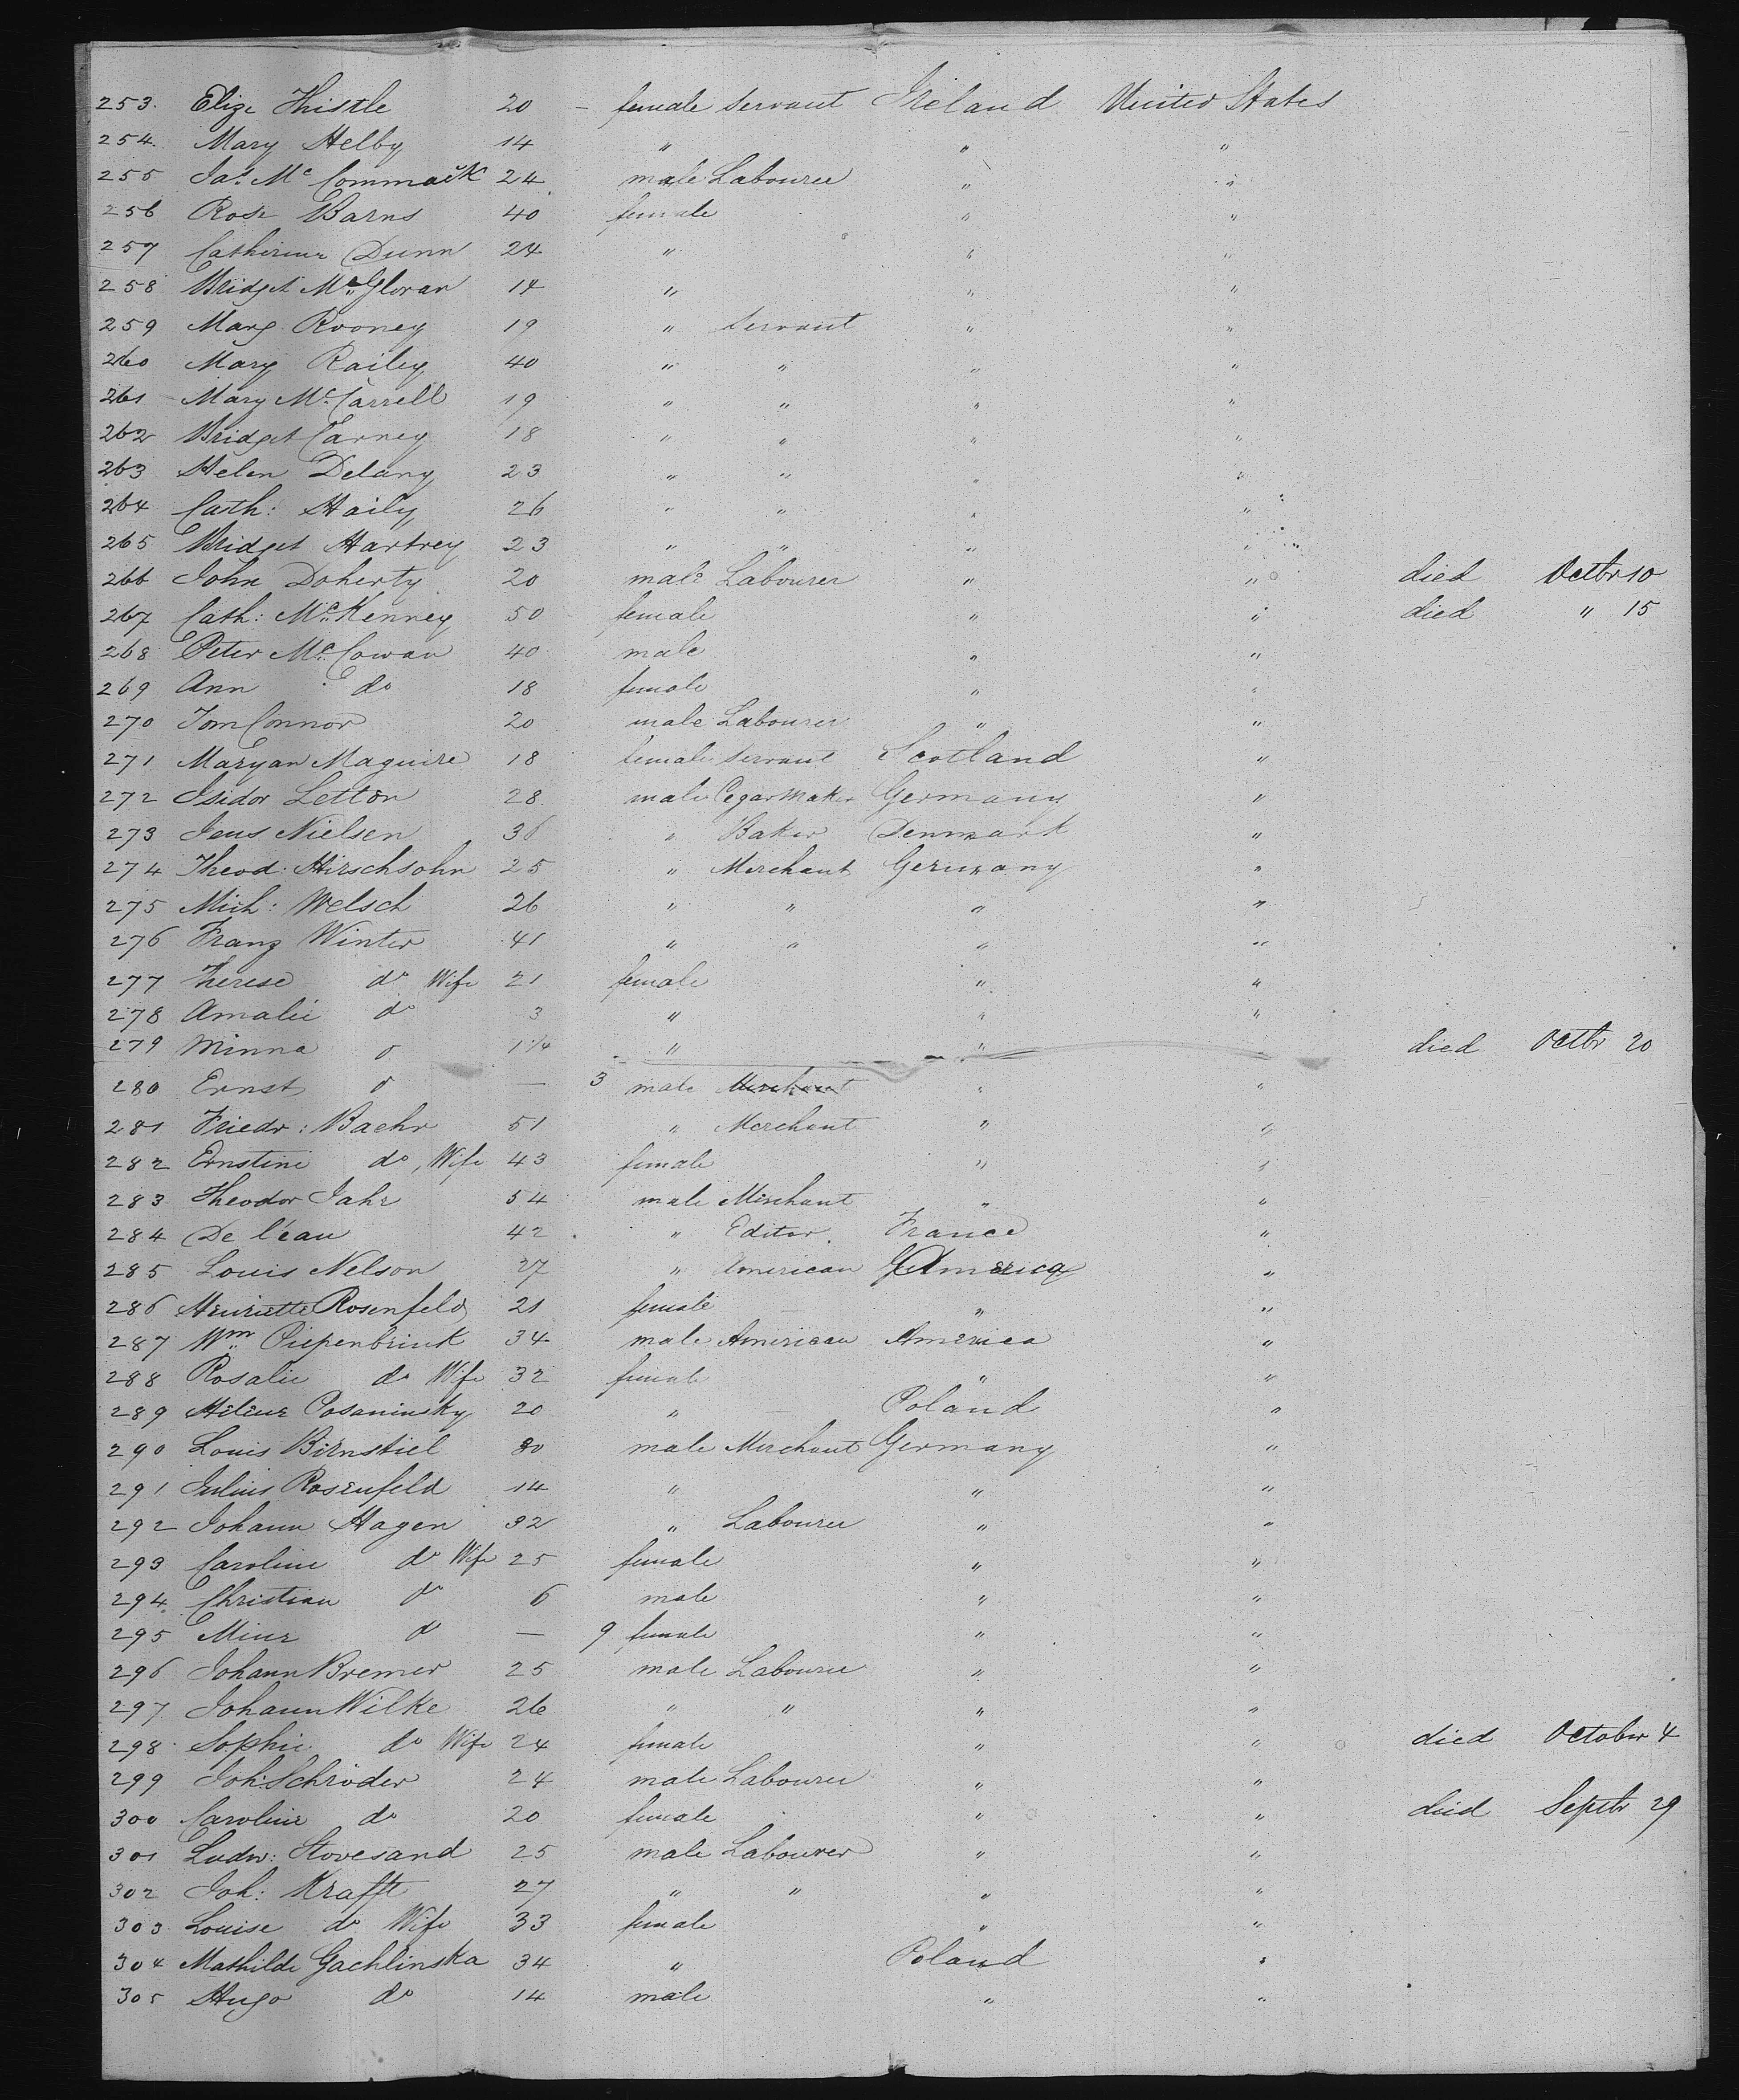 253. Elize Thistle 20 – female Servant Ireland United States
254. Mary Helby 14 " " "
255 Jas. Mc Commack 24 male Labourer " "
256 Rose Barns 40 female " "
257 Catherine Dunn 24 " " "
258 Bridget Mc Gloran 14 " " "
259 Marg. Rooney 19 " Servant " "
260 Mary Railey 40 " " " "
261 Mary Mc Carrell 19 " " " "
262 Bridget Carney 18 " " " "
263 Helen Delany 23 " " " "
264 Cath: Haily 26 " " " "
265 Bridget Hartrey 23 " " " "
266 John Doherty 20 male Labourer " " died Octbr 10
267 Cath: Mc Kenney 50 female " " died " 15
268 Peter Mc Cowan 40 male " "
269 Ann do 18 female " "
270 Tom Connor 20 male Labourer " "
271 Maryan Maguire 18 female Servant Scotland "
272 Isidor Letton 28 male Cegar Maker Germany "
273 Jens Nielsen 36 " Baker Denmark "
274 Theod: Hirschsohn 25 " Merchant Germany "
275 Mich: Welsch 26 " " " "
276 Franz Winter 41 " " " "
277 Therese do Wife 21 female " "
278 Amalie do 3 " " "
279 Minna do 1 1/4 " " " died Octbr 20
280 Ernst do — 3 male Merchant " "
281 Friedr: Baehr 51 " Merchant " "
282 Ernstine do, Wife 43 female " "
283 Theodor Jahr 54 male Merchant " "
284 De l'éau 42 " Editor. France "
285 Louis Nelson 27 " American America "
286 Henriette Rosenfeld 21 female – " "
287 Wm Piepenbrink 34 male American America "
288 Rosalie do Wife 32 female " "
289 Helene Posaninsky 20 " — Poland "
290 Louis Birnstiel 30 male Merchant Germany "
291 Julius Rosenfeld 14 " " "
292 Johann Hagen 32 " Labourer " "
293 Caroline do Wife 25 female " "
294 Christian do 6 male " "
295 Mine do — 9 female " "
296 Johann Bremer 25 male Labourer " "
297 Johann Wilke 26 " " " "
298 Sophie do Wife 24 female " " died October 4
299 Joh: Schröder 24 male Labourer " "
300 Caroline do 20 female " " died Septbr 29
301 Ludw: Stovesand 25 male Labourer " "
302 Joh: Krafft 27 " " " "
303 Louise do Wife 33 female " "
304 Mathilde Gachlinska 34 " Poland "
305 Hugo do 14 male " "